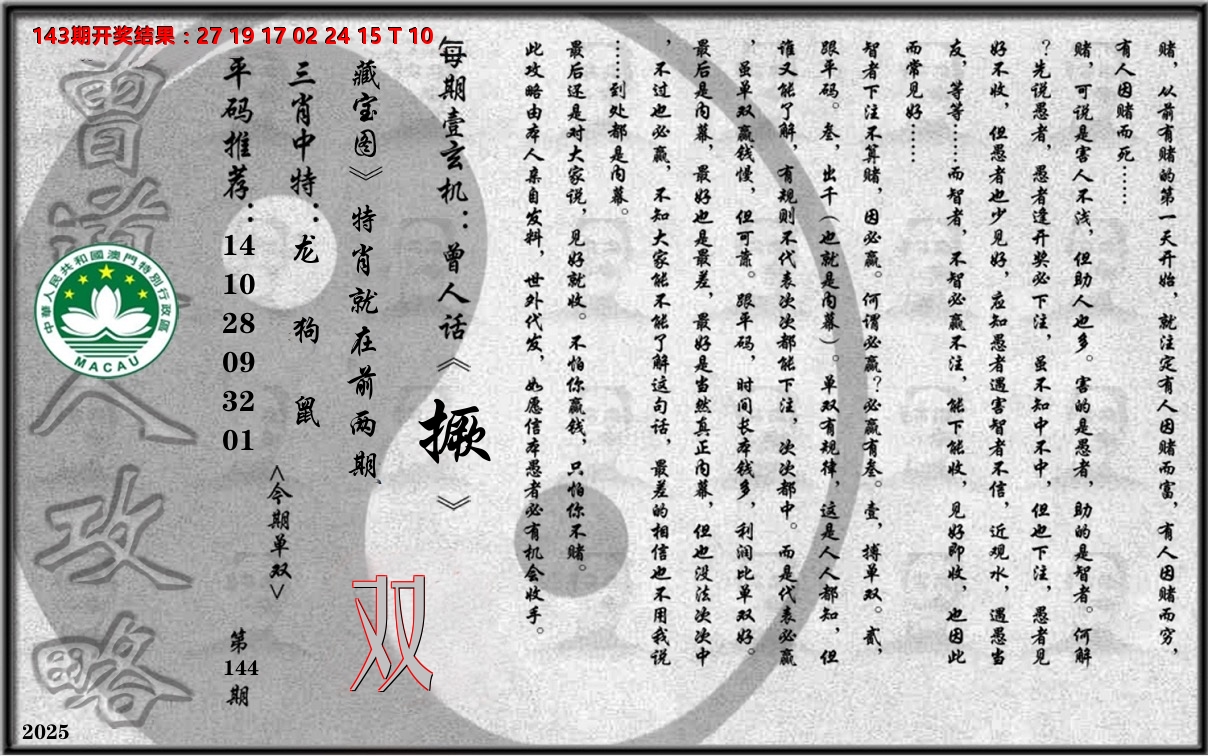 143期开奖结果：27 19 17 02 24 15 T 10
赌，从前有赌的第一天开始，就注定有人因赌而富，有人因赌而穷，
有人因赌而死……
赌，可说是害人不浅，但助人也多。害的是愚者，助的是智者。何解
？先说愚者，愚者逢开奖必下注，虽不知中不中，但也下注，愚者见
好不收，但愚者也少见好，应知愚者遇害智者不信，近观水，遇愚当
友，等等……而智者，不智必赢不注，能下能收，见好即收，也因此
而常见好……
智者下注不算赌，因必赢。何谓必赢？必赢有叁。壹，搏单双。贰，
跟平码。叁，出千（也就是内幕）。单双有规律，这是人人都知，但
谁又能了解，有规则不代表次次都能下注，次次都中。而是代表必赢
，虽单双赢钱慢，但可靠。跟平码，时间长本钱多，利润比单双好。
最后是内幕，最好也是最差，最好是当然真正内幕，但也没法次次中
，不过也必赢，不知大家能不能了解这句话，最差的相信也不用我说
……到处都是内幕。
最后还是对大家说，见好就收。不怕你赢钱，只怕你不赌。
此攻略由本人亲自发料，世外代发，如愿信本愚者必有机会收手。
每期壹玄机：曾人话《 撅 》
藏宝图》特肖就在前两期
双
三肖中特：龙 狗 鼠
<今期单双>
平码推荐：14 10 28 09 32 01
第144期
曾道人攻略
中華人民共和國澳門特別行政區
MACAU
2025